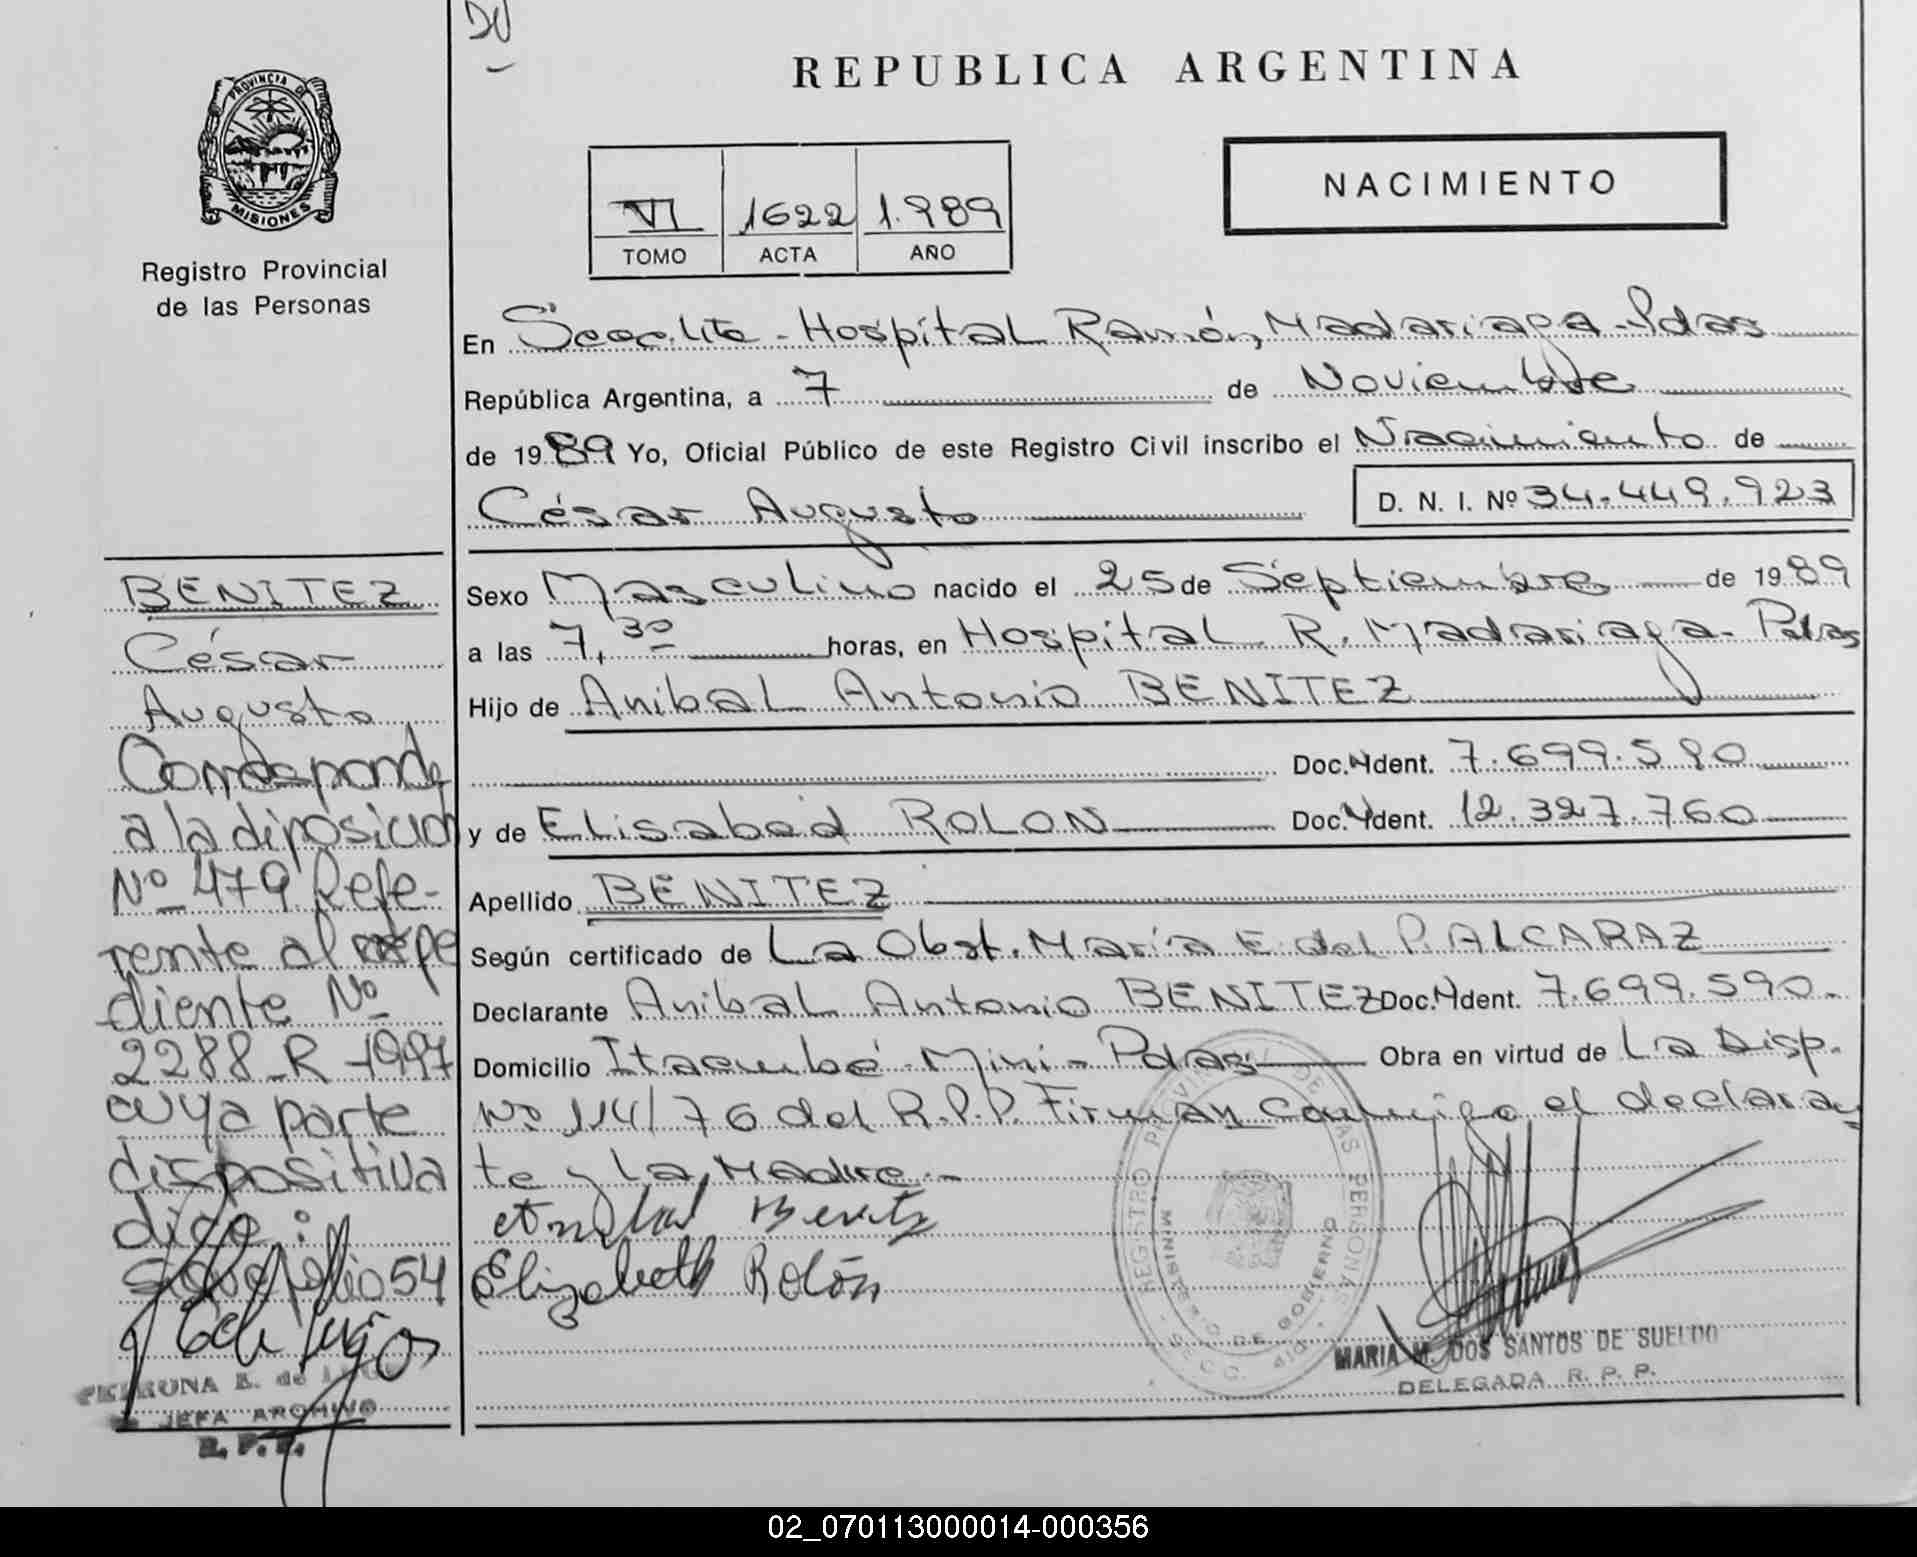 DU
PROVINCIA DE
MISIONES
Registro Provincial
de las Personas
REPUBLICA ARGENTINA
NACIMIENTO
VI 1622 1.989
TOMO ACTA AÑO
En Secc. Lite - Hospital Ramón Madariaga - Pdas
República Argentina, a 7 de Noviembre
de 1989 Yo, Oficial Público de este Registro Civil inscribo el Nacimiento de
César Augusto D. N. I. Nº 34.449.923
Sexo Masculino nacido el 25 de Septiembre de 1989
a las 7,30 horas, en Hospital R. Madariaga - Pdas
Hijo de Anibal Antonio BENITEZ
Doc. Ident. 7.699.590
y de Elisabed ROLON Doc. Ident. 12.327.760
Apellido BENITEZ
Según certificado de La Obst. María E. del P. ALCARAZ
Declarante Anibal Antonio BENITEZ Doc. Ident. 7.699.590.
Domicilio Itaembé - Mini - Pdas Obra en virtud de La Disp.
Nº 114/76 del R.P.P. Firman conmigo el declaran
te y La Madre.-
Anibal Benitez
Elizabeth Rolón
REGISTRO PROVINCIAL DE LAS PERSONAS
MINISTERIO DE GOBIERNO
MARIA M. DOS SANTOS DE SUELDO
DELEGADA R. P. P.
BENITEZ
César
Augusto
Corresponde
a la diposicion
Nº 479 Refe-
rente al expe
diente Nº
2288-R-1997
cuya parte
dispositiva
dice:
folio 54
JEFA ARCHIVO
R. P. P.
02_070113000014-000356